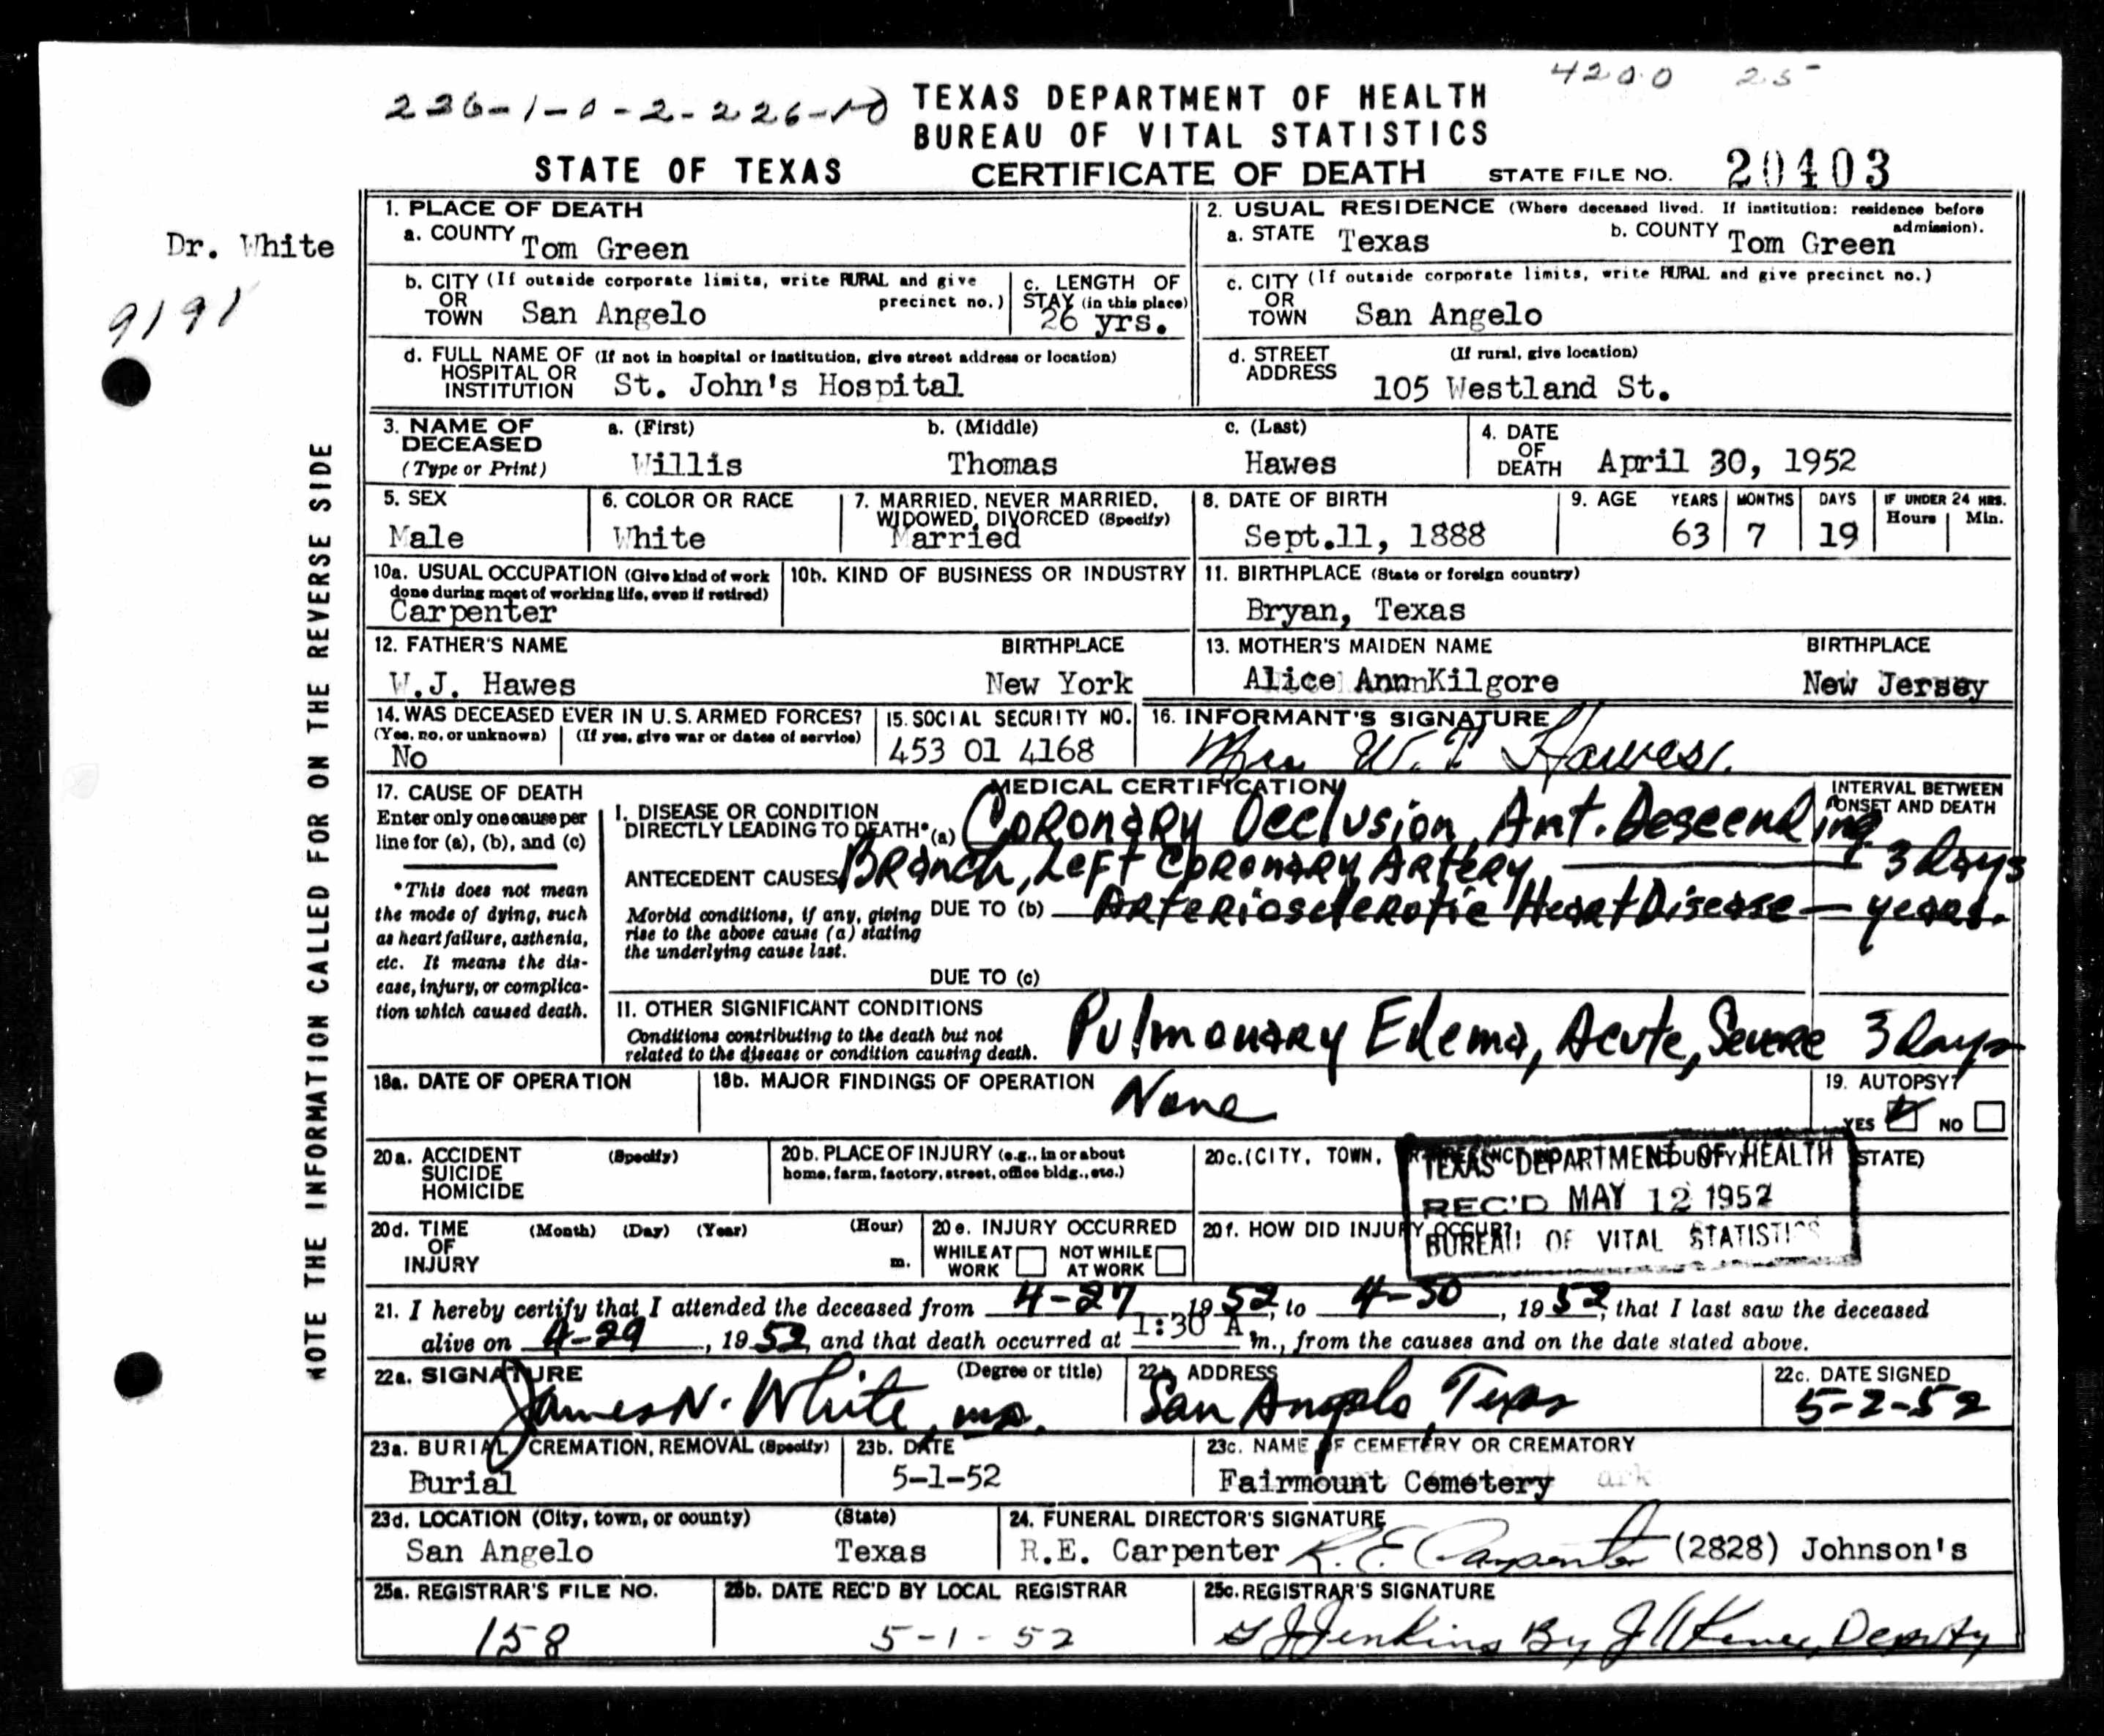 4200 25
236-1-0-2-226-10
TEXAS DEPARTMENT OF HEALTH
BUREAU OF VITAL STATISTICS
STATE OF TEXAS CERTIFICATE OF DEATH STATE FILE NO. 20403
Dr. White
9191
NOTE THE INFORMATION CALLED FOR ON THE REVERSE SIDE
1. PLACE OF DEATH
a. COUNTY Tom Green
2. USUAL RESIDENCE (Where deceased lived. If institution: residence before admission).
a. STATE Texas b. COUNTY Tom Green
b. CITY (If outside corporate limits, write RURAL and give precinct no.)
OR
TOWN San Angelo
c. LENGTH OF
STAY (in this place)
26 yrs.
c. CITY (If outside corporate limits, write RURAL and give precinct no.)
OR
TOWN San Angelo
d. FULL NAME OF (If not in hospital or institution, give street address or location)
HOSPITAL OR
INSTITUTION St. John's Hospital
d. STREET (If rural, give location)
ADDRESS 105 Westland St.
3. NAME OF
DECEASED
(Type or Print)
a. (First) b. (Middle) c. (Last)
Willis Thomas Hawes
4. DATE
OF
DEATH April 30, 1952
5. SEX
Male
6. COLOR OR RACE
White
7. MARRIED, NEVER MARRIED,
WIDOWED, DIVORCED (Specify)
Married
8. DATE OF BIRTH
Sept.11, 1888
9. AGE YEARS MONTHS DAYS IF UNDER 24 HRS.
Hours Min.
63 7 19
10a. USUAL OCCUPATION (Give kind of work
done during most of working life, even if retired)
Carpenter
10b. KIND OF BUSINESS OR INDUSTRY
11. BIRTHPLACE (State or foreign country)
Bryan, Texas
12. FATHER'S NAME BIRTHPLACE
W.J. Hawes New York
13. MOTHER'S MAIDEN NAME BIRTHPLACE
Alice Ann Kilgore New Jersey
14. WAS DECEASED EVER IN U.S. ARMED FORCES?
(Yes, no, or unknown) (If yes, give war or dates of service)
No
15. SOCIAL SECURITY NO.
453 01 4168
16. INFORMANT'S SIGNATURE
Mrs W. T Hawes.
17. CAUSE OF DEATH
Enter only one cause per
line for (a), (b), and (c)
*This does not mean
the mode of dying, such
as heart failure, asthenia,
etc. It means the dis-
ease, injury, or complica-
tion which caused death.
MEDICAL CERTIFICATION
INTERVAL BETWEEN
ONSET AND DEATH
I. DISEASE OR CONDITION
DIRECTLY LEADING TO DEATH* (a) Coronary Occlusion, Ant. Descending
Branch, Left Coronary Artery 3 days
ANTECEDENT CAUSES
Morbid conditions, if any, giving
rise to the above cause (a) stating
the underlying cause last.
DUE TO (b) Arteriosclerotic Heart Disease — years.
DUE TO (c)
II. OTHER SIGNIFICANT CONDITIONS
Conditions contributing to the death but not
related to the disease or condition causing death.
Pulmonary Edema, Acute, Severe 3 days
18a. DATE OF OPERATION
18b. MAJOR FINDINGS OF OPERATION
None
19. AUTOPSY?
YES NO
20a. ACCIDENT (Specify)
SUICIDE
HOMICIDE
20b. PLACE OF INJURY (e.g., in or about
home, farm, factory, street, office bldg., etc.)
20c. (CITY, TOWN, (STATE)
TEXAS DEPARTMENT OF HEALTH
REC'D MAY 12 1952
BUREAU OF VITAL STATISTICS
20d. TIME (Month) (Day) (Year) (Hour)
OF
INJURY m.
20e. INJURY OCCURRED
WHILE AT WORK NOT WHILE AT WORK
20f. HOW DID INJURY OCCUR?
21. I hereby certify that I attended the deceased from 4-27, 1952, to 4-30, 1952, that I last saw the deceased
alive on 4-29, 1952, and that death occurred at 1:30 A m., from the causes and on the date stated above.
22a. SIGNATURE (Degree or title)
James N. White, MD.
22b. ADDRESS
San Angelo, Texas
22c. DATE SIGNED
5-2-52
23a. BURIAL, CREMATION, REMOVAL (Specify)
Burial
23b. DATE
5-1-52
23c. NAME OF CEMETERY OR CREMATORY
Fairmount Cemetery
23d. LOCATION (City, town, or county) (State)
San Angelo Texas
24. FUNERAL DIRECTOR'S SIGNATURE
R.E. Carpenter R. E. Carpenter (2828) Johnson's
25a. REGISTRAR'S FILE NO.
158
25b. DATE REC'D BY LOCAL REGISTRAR
5-1-52
25c. REGISTRAR'S SIGNATURE
Jenkins By Deputy